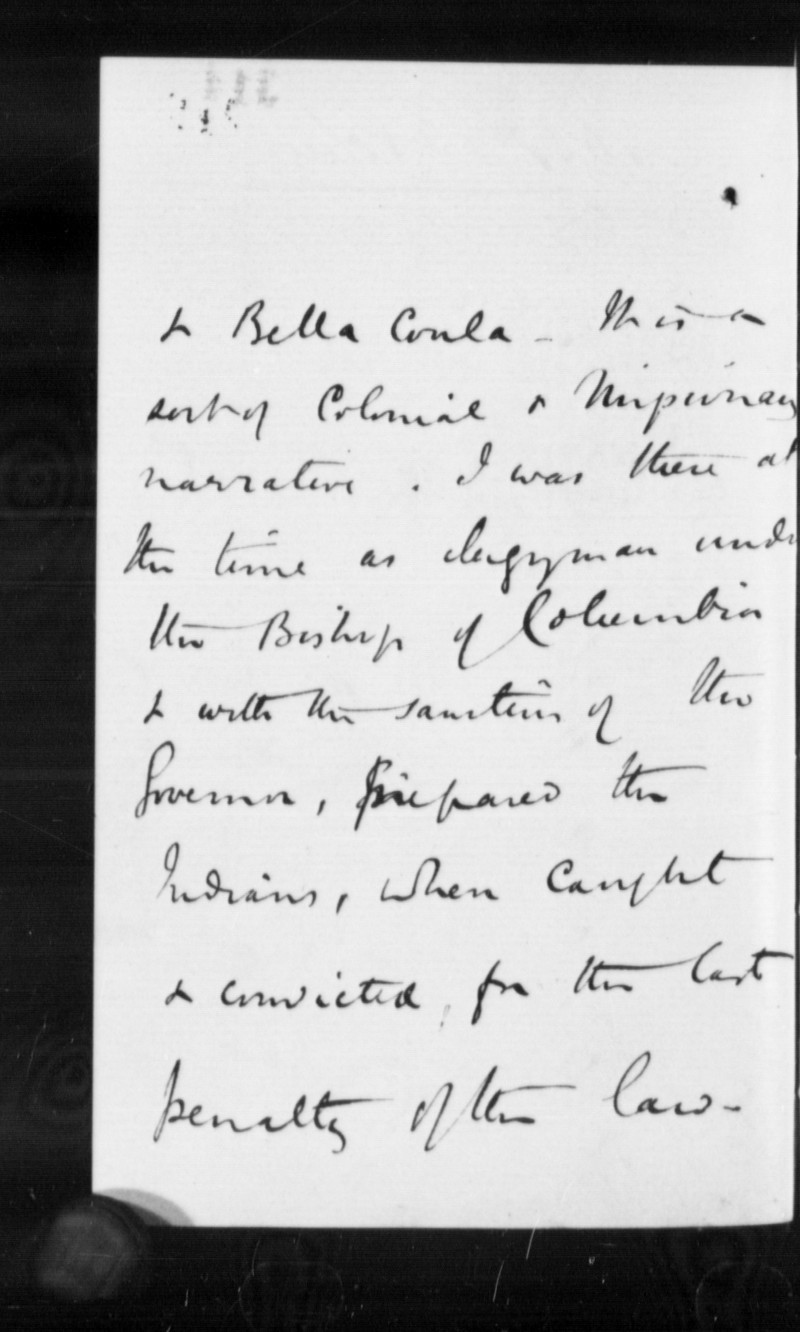 & Bella Coola - This is a
sort of Colonial & Missionary
narrative. I was there at
the time as clergyman under
the Bishop of Columbia
& with the sanction of the
Governor, prepared the
Indians, when caught
& convicted, for the last
penalty of the law -